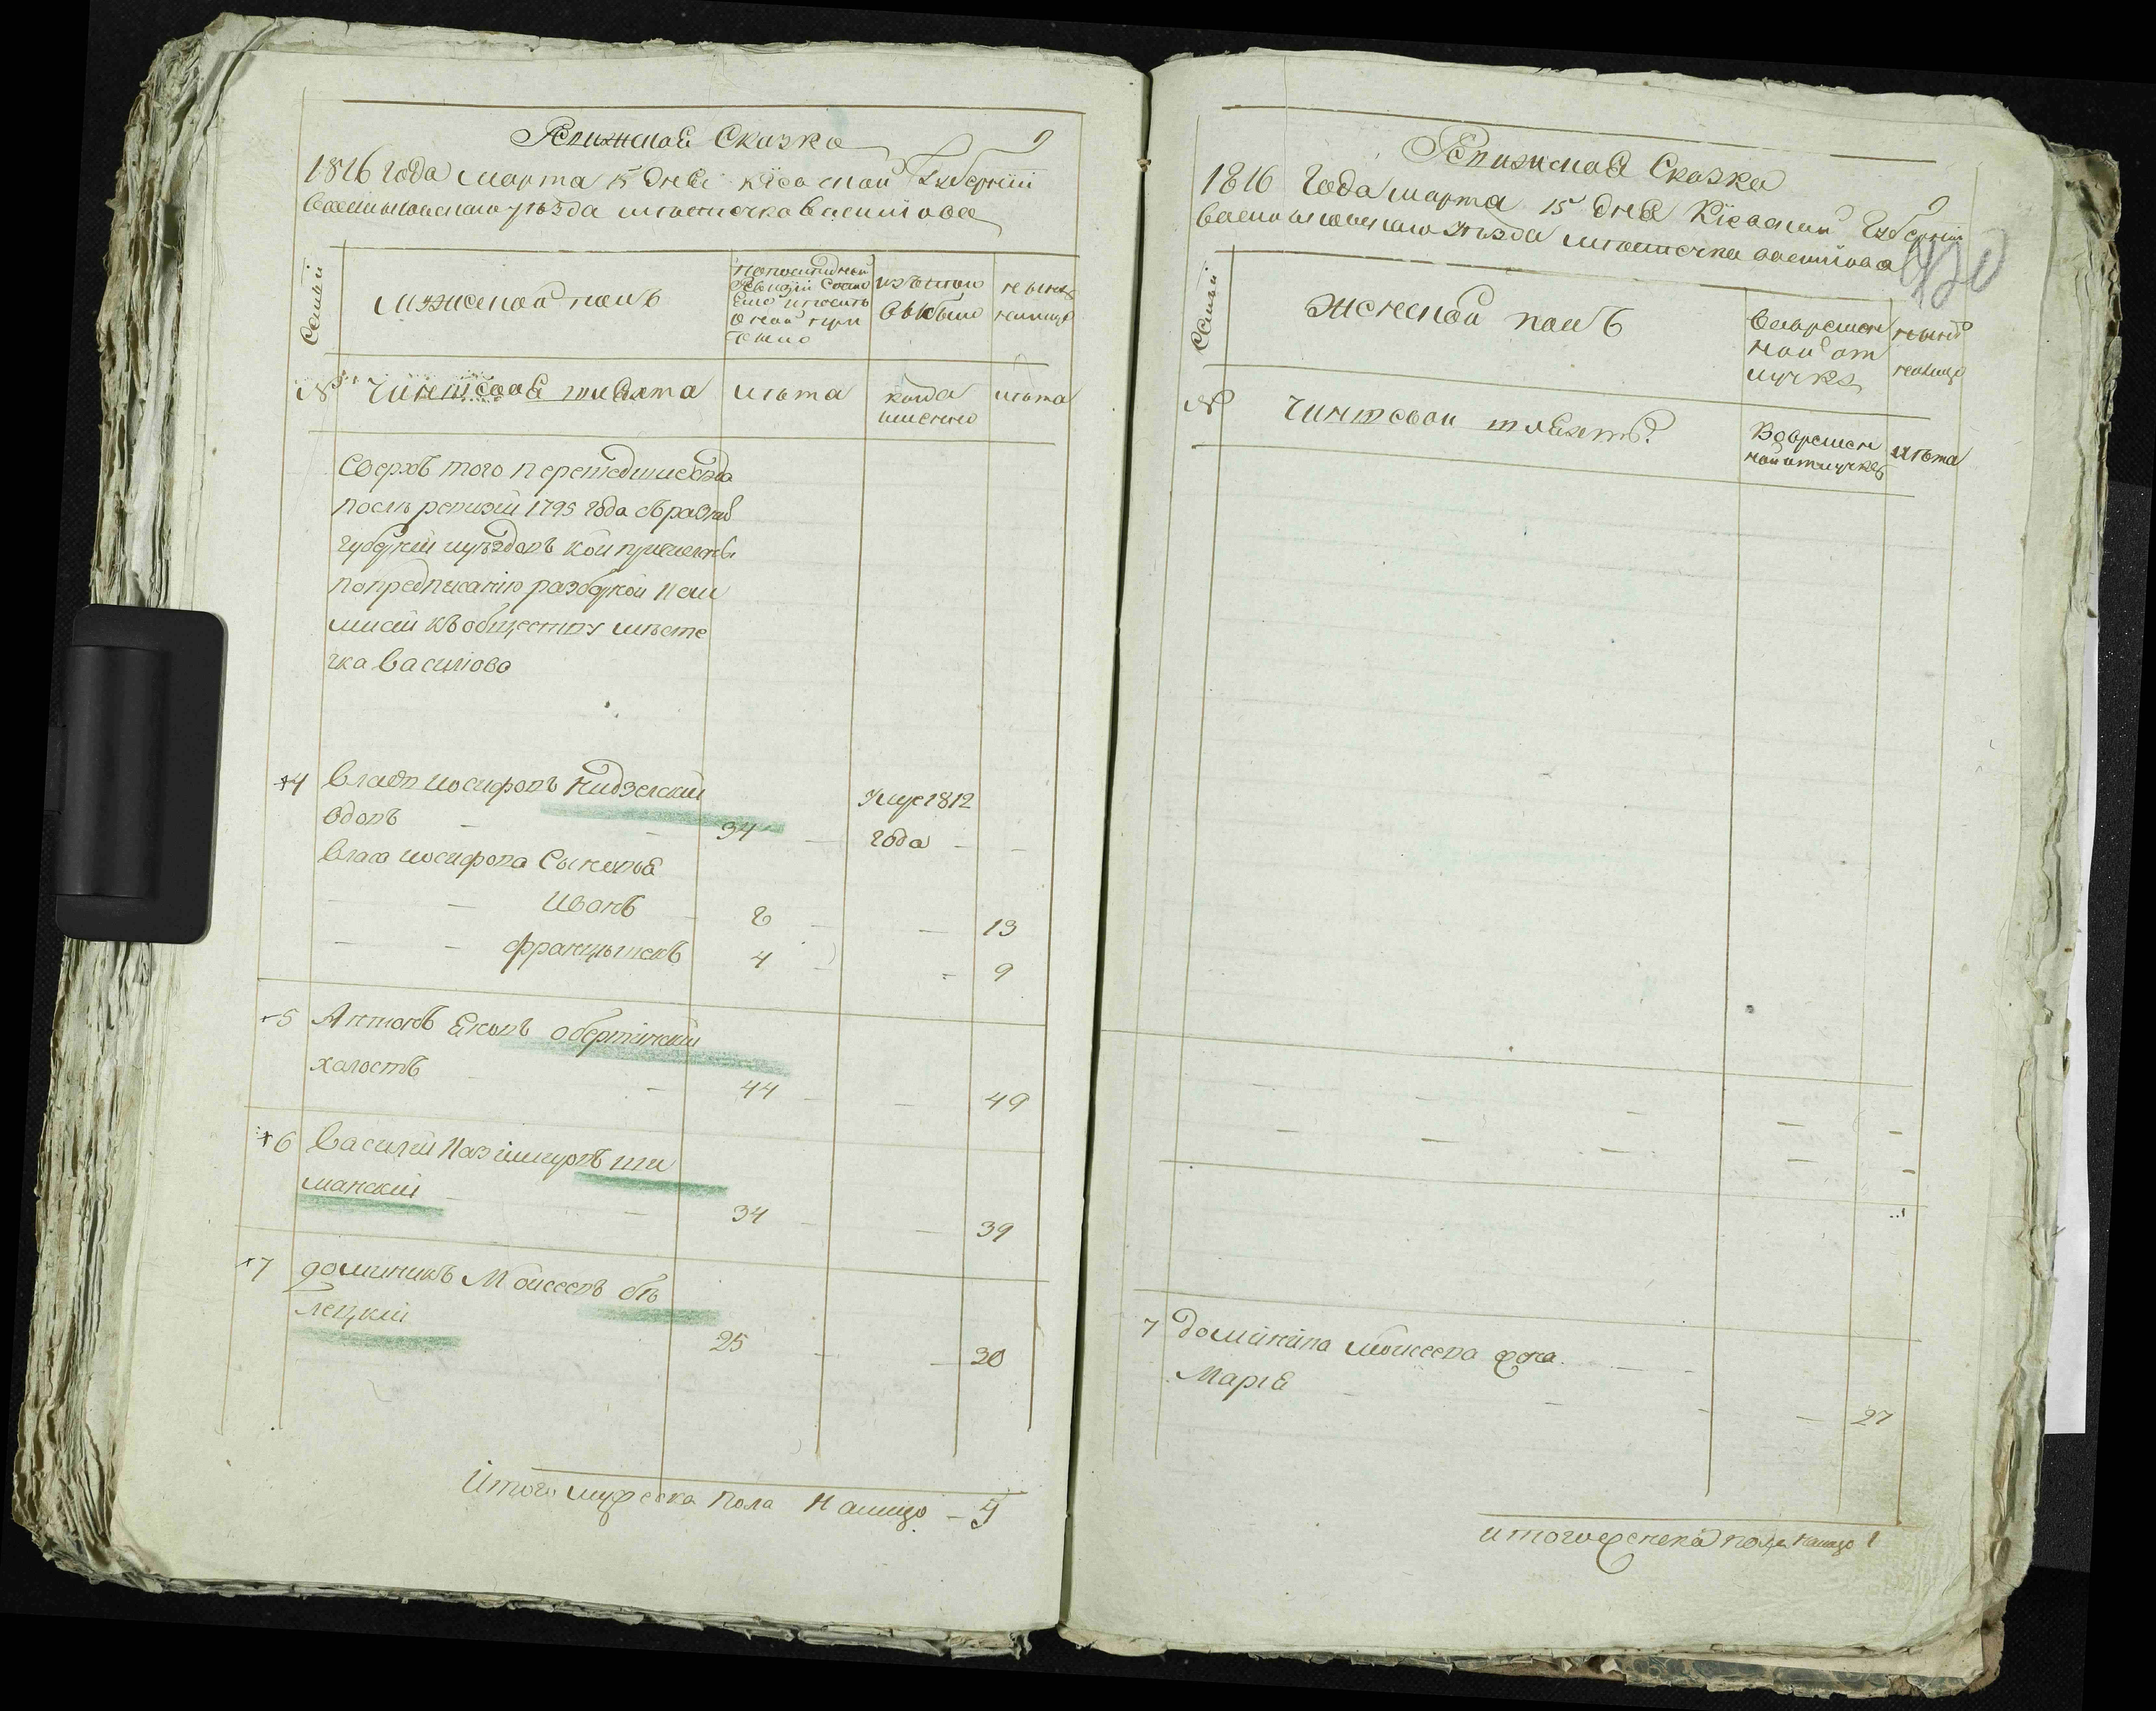 Ревижская Сказка
1816 года марта 15 дня Кіевской Губерніи 9
Васильковскаго уѣзда мѣстечка Василіова
Семьи
Мужеской полъ
По последней ревизіи состояло и после оной прибыло
Изъ того выбыло
Нынѣ налицо
№
Чиншовая шляхта
Лѣта
когда именно
Лѣта
Сверхъ того перешедшіе сюда
послѣ ревизіи 1795 года съ разныхъ
губерній и уѣздовъ кои причислены
по предписанію разборной Ком
мисіи къ обществу мѣсте
чка Василіова
4 Влади Иосифовъ Нидзелскій
вдовъ 34 Умре 1812
года
Влада иосифова Сыновья
Иванъ 8 13
Францышекъ 4 9
5 Антонъ Яковъ Обертинскій
халостъ 44 49
6 Василій Казимировъ Ши
манскій 34 39
7 Доминикъ Моисеевъ Бѣ
лецкій 25 30
Итого мужеска пола налицо 5
Ревижская Сказка
1816 Года марта 15 дня Кіевской Губерніи 9
Васильковскаго уѣзда мѣстечка Василіова
420
Семьи
Женской полъ
Во временной отлучке
Нынѣ налицо
№
Чиншовой шляхты
Во временной отлучке
Лѣта
7 Доминика Моисеева жена
Марія 27
итого женска пола налицо 1